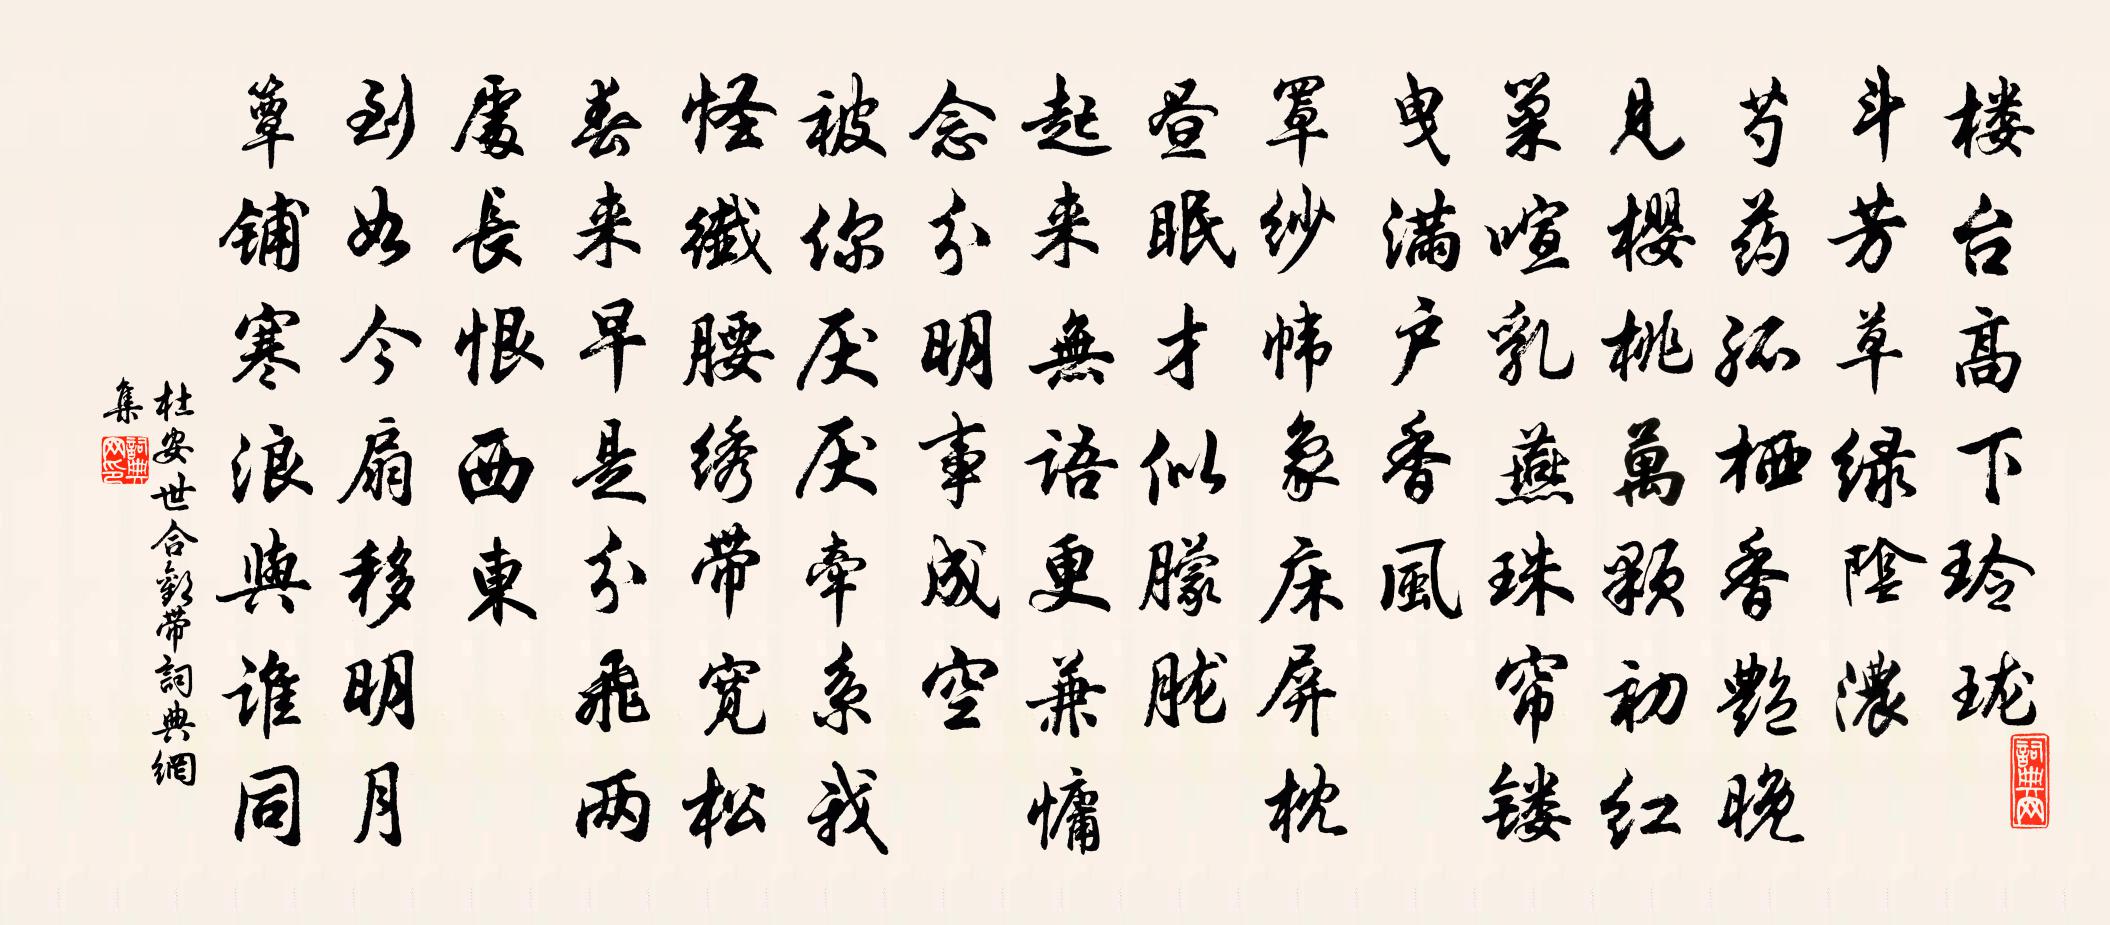 楼台高下玲珑
斗芳草绿陰濃
芍药孤栖香艷晚
见櫻桃萬颗初红
巢喧乳燕珠帘镂
曳满户香風
罩纱帏象床屏枕
昼眠才似朦胧
起来無語更兼慵
念分明事成空
被你厌厌牵系我
怪纖腰绣带宽松
春来早是分飛两
處長恨西東
到如今扇移明月
簟铺寒浪與谁同
杜安世合歡带詞典網
集
詞典网
詞典网印